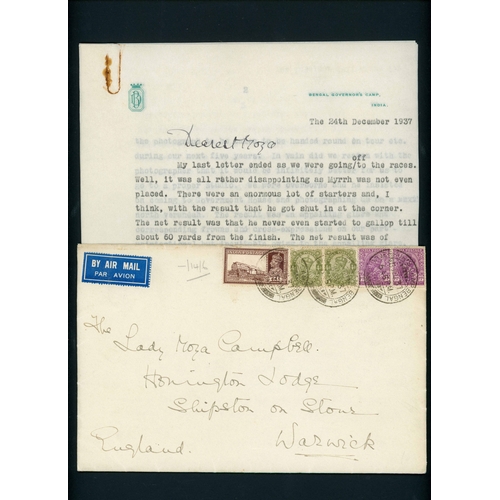 BENGAL GOVERNOR'S CAMP,
INDIA.
The 24th December 1937
Dearest Moza
off
My last letter ended as we were going/to the races.
Well, it was all rather disappointing as Myrrh was not even
placed. There were an enormous lot of starters and, I
think, with the result that he got shut in at the corner.
The net result was that he never even started to gallop till
about 60 yards from the finish. The net result was of
BY AIR MAIL
PAR AVION
-/14/6
The
Lady Moza Campbell.
Honington Lodge
Shipston on Stour
England. Warwick